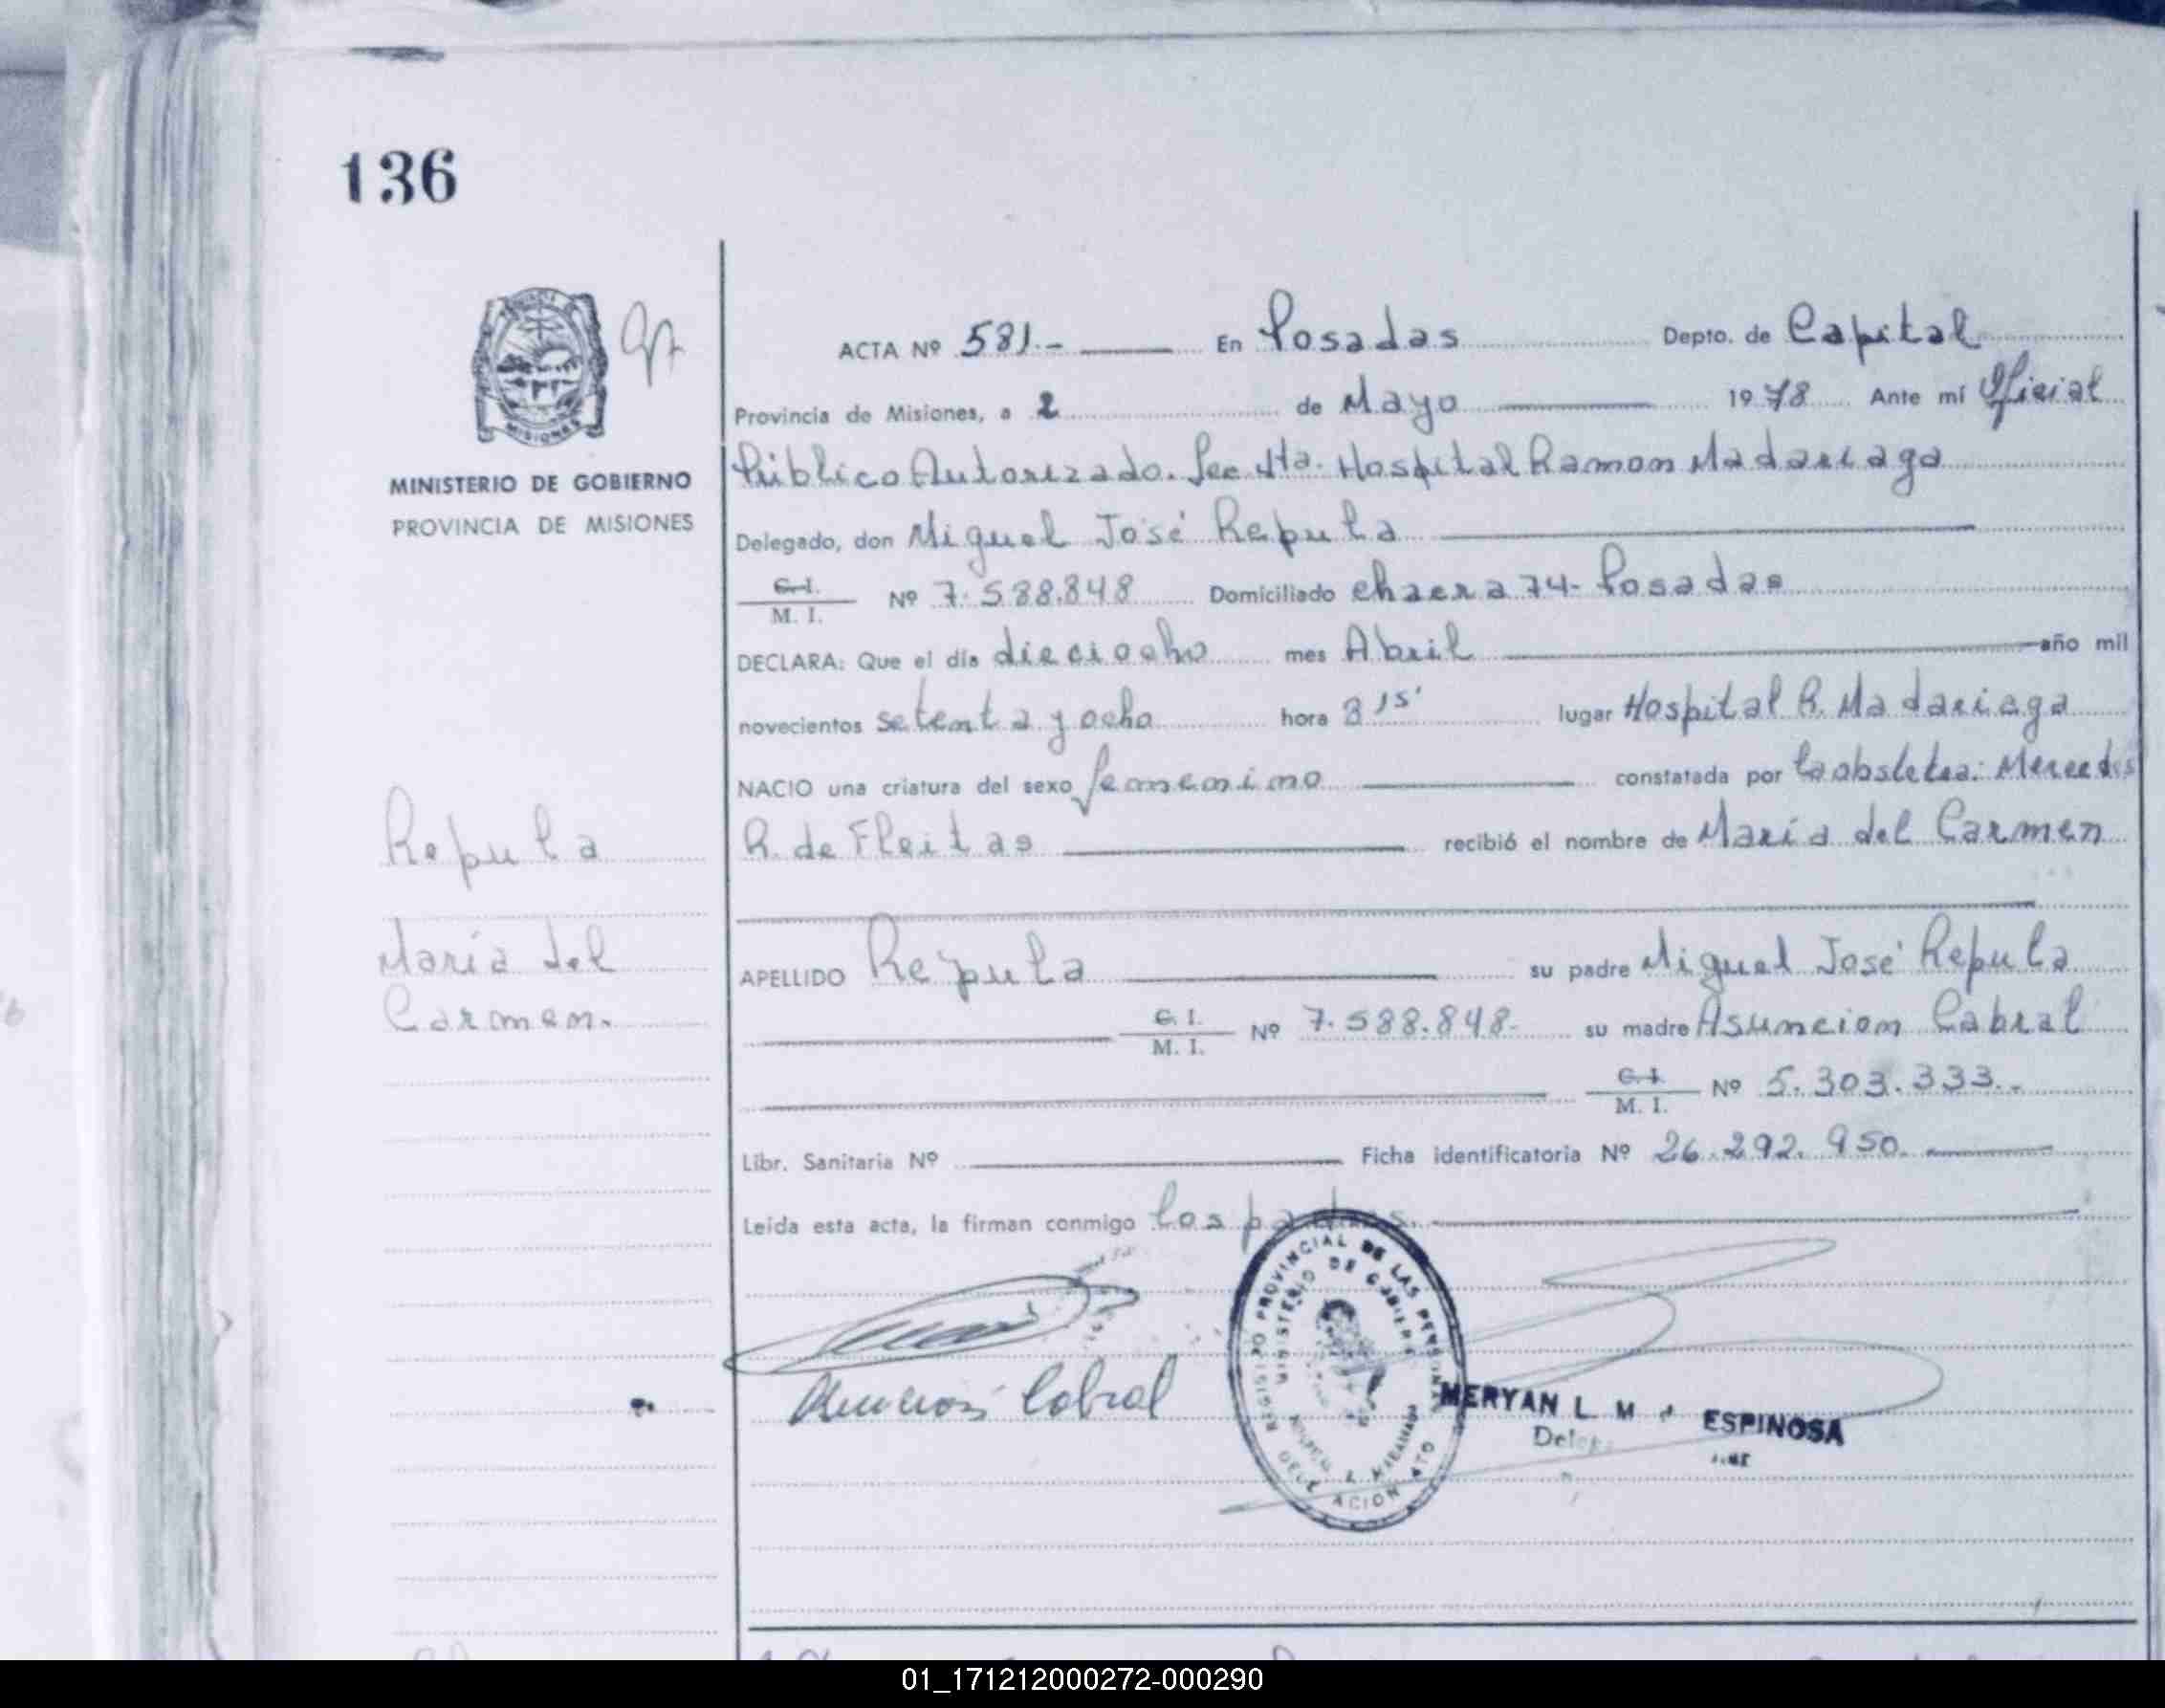 136
MINISTERIO DE GOBIERNO
PROVINCIA DE MISIONES
Repula
María del
Carmen.
ACTA Nº 581.- En Posadas Depto. de Capital
Provincia de Misiones, a 2 de Mayo 1978 Ante mí Oficial
Público Autorizado. Sec 4ta. Hospital Ramon Madariaga
Delegado, don Miguel José Repula
C. I.
M. I. Nº 7.588.848 Domiciliado chacra 74- Posadas
DECLARA: Que el día dieciocho mes Abril año mil
novecientos setenta y ocho hora 3 15' lugar Hospital R. Madariaga
NACIO una criatura del sexo femenino constatada por la obstetra: Mercedes
R. de Fleitas recibió el nombre de María del Carmen
APELLIDO Repula su padre Miguel José Repula
C. I.
M. I. Nº 7.588.848- su madre Asuncion Cabral
C. I.
M. I. Nº 5.303.333.-
Libr. Sanitaria Nº Ficha identificatoria Nº 26.292.950.
Leída esta acta, la firman conmigo los padres.
Asuncion Cabral
REGISTRO PROVINCIAL DE LAS PERSONAS
MINISTERIO DE GOBIERNO
MERYAN L. M. ESPINOSA
01_171212000272-000290